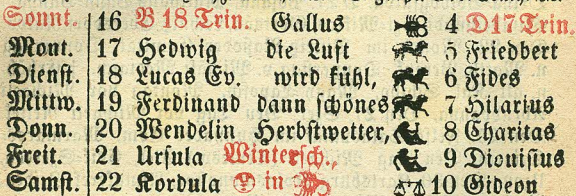 Sonnt. 16 B 18 Trin. Gallus 4 D17 Trin.
Mont. 17 Hedwig die Luft 5 Friedbert
Dienst. 18 Lucas Ev. wird kühl, 6 Fides
Mittw. 19 Ferdinand dann schönes 7 Hilarius
Donn. 20 Wendelin Herbstwetter, 8 Charitas
Freit. 21 Ursula Wintersch., 9 Dionisius
Samst. 22 Kordula in 10 Gideon